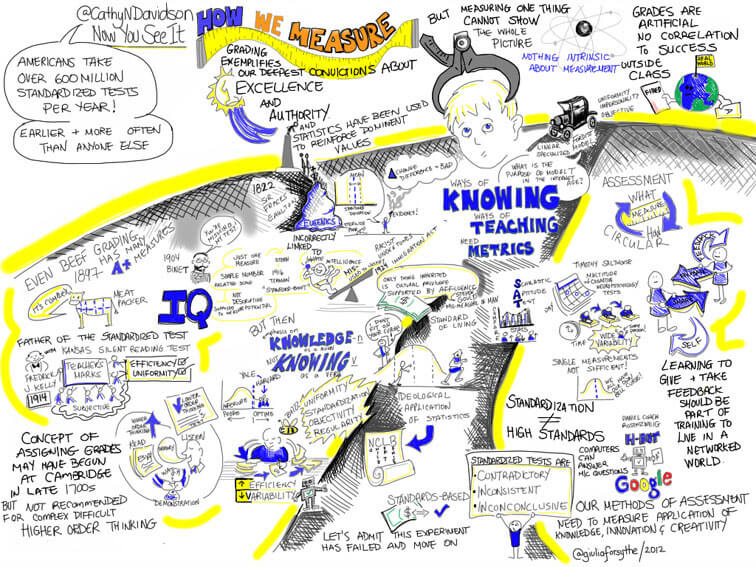 @CathyNDavidson
Now You See It
AMERICANS TAKE
OVER 600 MILLION
STANDARDIZED TESTS
PER YEAR!
EARLIER + MORE OFTEN
THAN ANYONE ELSE
HOW WE MEASURE
GRADING
EXEMPLIFIES
OUR DEEPEST CONVICTIONS ABOUT
EXCELLENCE
AND
AUTHORITY
AND
STATISTICS HAVE BEEN USED
TO REINFORCE DOMINENT
VALUES
BUT MEASURING ONE THING
CANNOT SHOW
THE WHOLE
PICTURE
NOTHING INTRINSIC
ABOUT MEASUREMENT
GRADES ARE
ARTIFICIAL
NO CORRELATION
TO SUCCESS
OUTSIDE
CLASS
REAL
WORLD
UNIFORMITY
IMPERSONALITY
OBJECTIVE
LINEAR
SPECIALIZED
FORDIST
MODEL
WHAT IS THE
PURPOSE OF MODEL T
IN THE INTERNET
AGE?
WAYS OF
KNOWING
WAYS OF
TEACHING
NEED
METRICS
ASSESSMENT
WHAT
MEASURE
HOW
CIRCULAR
1822
MEAN
STANDARD
DEVIATION
CHANGE
DIFFERENCE = BAD
EUGENICS
INCORRECTLY
LINKED
TO
INNATE
INTELLIGENCE
EVEN BEEF GRADING
HAS MANY
MEASURES
1897
A+
IT'S COMPLEX
MEAT
PACKER
1904
BINET
IQ
JUST ONE
MEASURE
SIMPLE NUMBER
STERN
1916
TERMAN
"STANFORD-BINET"
RACIST
UNDERTONES
1924
IMMIGRATION ACT
ONLY THING INHERITED
IS CULTURAL PRIVILEGE
SUPPORTED BY AFFLUENCE
STANDARD
OF LIVING
SCHOLASTIC
APTITUDE
SAT
FATHER OF THE STANDARDIZED TEST
KANSAS SILENT READING TEST
FREDRICK
J KELLY
1914
TEACHER'S
MARKS
SUBJECTIVE
EFFICIENCY
UNIFORMITY
BUT THEN
KNOWLEDGE-n
AS A NOUN
NOT
KNOWING v
AS A VERB
YALE
HARVARD
UNIFORMITY
STANDARDIZATION
OBJECTIVITY
REGULARITY
DON'T
FIT ON
YOUR CURVE!
IDEOLOGICAL
APPLICATION
OF STATISTICS
NCLB
TIMOTHY SALTHOUSE
MULTITUDE
OF COMMON
NEUROPSYCHOLOGY
TESTS
TIME
WIDE
VARIABILITY
SINGLE MEASUREMENTS
NOT SUFFICIENT!
FEEDBACK
SHARE
SELF
LEARNING TO
GIVE + TAKE
FEEDBACK
SHOULD BE
PART OF
TRAINING TO
LIVE IN A
NETWORKED
WORLD.
CONCEPT OF
ASSIGNING GRADES
MAY HAVE BEGUN
AT CAMBRIDGE
IN LATE 1700s
BUT NOT RECOMMENDED
FOR COMPLEX DIFFICULT
HIGHER ORDER THINKING
HIGHER
ORDER
THINKING
LOWER
ORDER
THINKING
READ
ESSAY
LISTEN
WATCH
DEMONSTRATION
EFFICIENCY
VARIABILITY
STANDARDS-BASED
LET'S ADMIT THIS EXPERIMENT
HAS FAILED AND MOVE ON
STANDARDIZATION
≠
HIGH STANDARDS
STANDARDIZED TESTS ARE
• CONTRADICTORY
• INCONSISTENT
• INCONCONCLUSIVE
DANIEL COHEN
ROSENZWEIG
H-BOT
COMPUTERS
CAN
ANSWER
M/C QUESTIONS
Google
OUR METHODS OF ASSESSMENT
NEED TO MEASURE APPLICATION OF
KNOWLEDGE, INNOVATION & CREATIVITY
@giuliaforsythe/2012